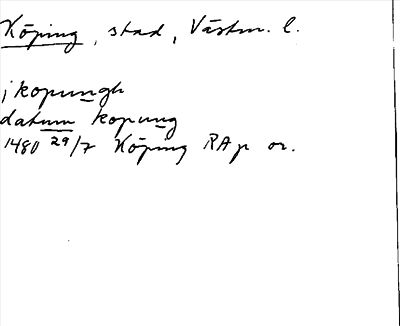 Köping, stad, Västm. l.
j kopungh
datum kopung
1480 29/7 Köping RAp or.